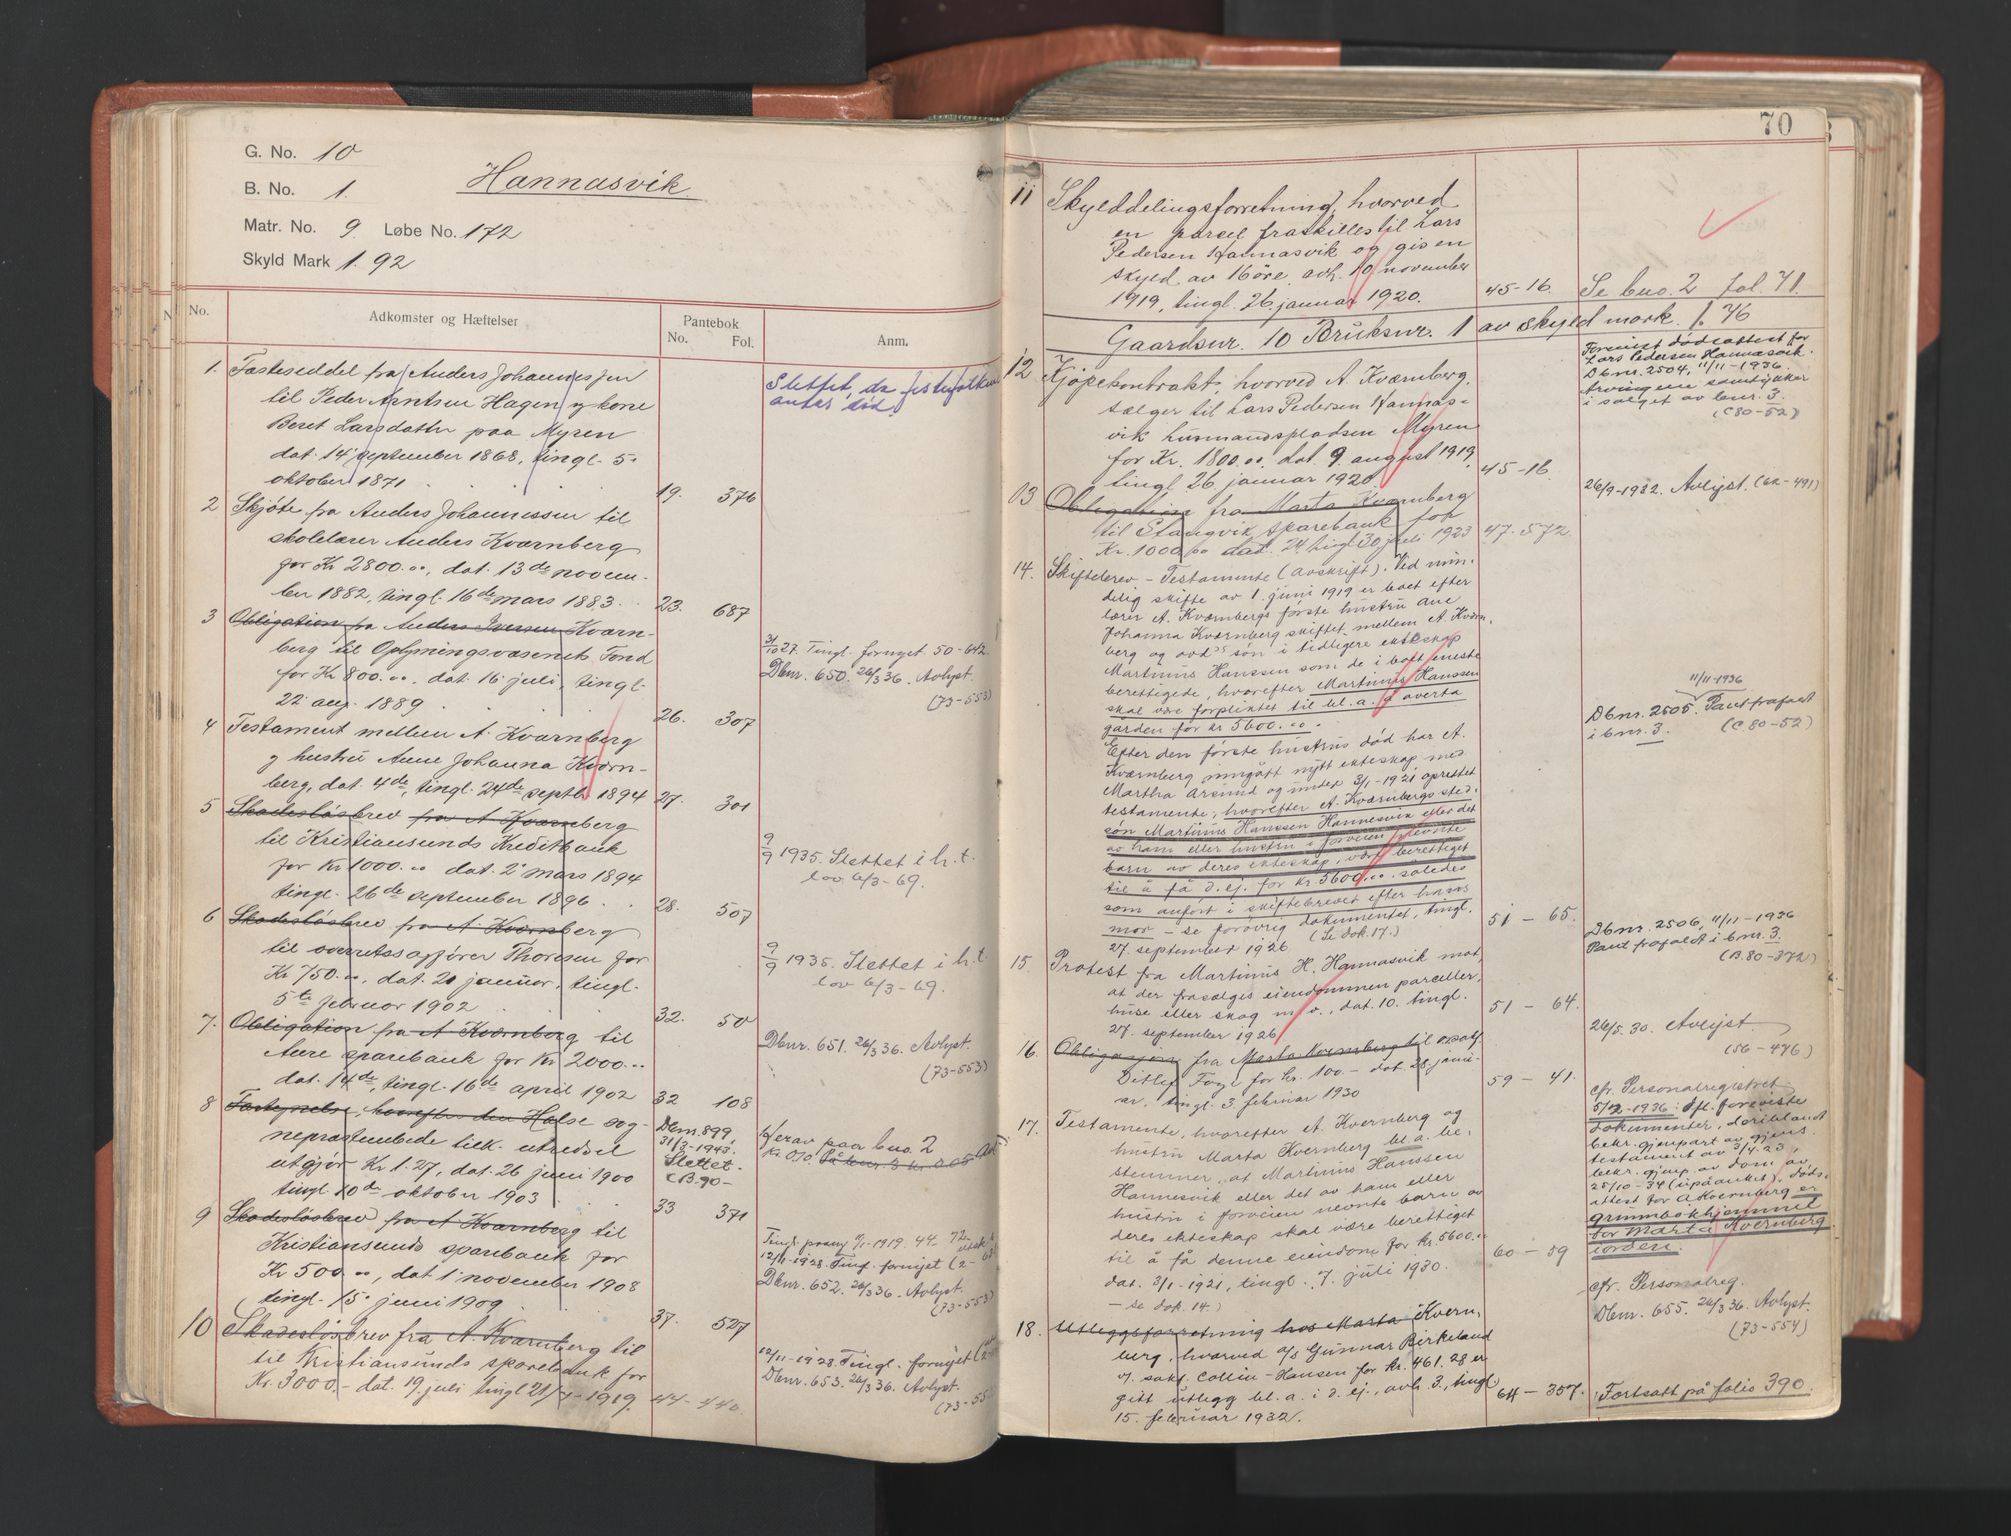 G. No. 10
B. No. 1.
Hannasvik
Matr. No. 9. Løbe No. 172
Skyld Mark 1.92
No.
Adkomster og Hæftelser
Pantebok
No. Fol.
Anm.
1. Fæsteseddel fra Anders Johannessen
til Peder Arntsen Hagen og kone
Beret Larsdatter paa Myren
dat. 14 september 1868, tingl. 5.
oktober 1871 19. 376
Slettet, da festefolkene
antas død.
2 Skjøte fra Anders Johannessen til
skolelærer Anders Kværnberg
for Kr 2800.00, dat. 13de novem-
ber 1882, tingl. 16de mars 1883. 23. 687
3 Obligation fra Anders Iversen Kværn-
berg til Oplysningsvæsenets Fond
for Kr 800.00. dat. 16 juli, tingl.
22 aug. 1889 26. 307
3/10 27. Tingl. fornyet. 50-642.
Dbnr. 650. 26/3 36. Avlyst.
(73-553)
4 Testament mellem A. Kværnberg
og hustru Anne Johanna Kværn-
berg, dat. 4de, tingl. 24de septbr 1894 27. 301
5 Skadesløsbrev fra A Kværnberg
til Kristiansunds Kreditbank
for Kr 1000.00 dat. 2 mars 1894
tingl. 26de september 1896 28. 507
9/9 1935. Slettet i h.t.
lov 6/3-69.
6 Skadesløsbrev fra A Kværnberg
til overretssagfører Thoresen for
Kr 750.00, dat. 20 januar, tingl.
5te februar 1902 32. 50
9/9 1935. Slettet i h.t.
lov 6/3-69.
7. Obligation fra A Kværnberg til
Aure sparebank for Kr 2000...
dat. 14de, tingl. 16de april 1902 32 108
Dbnr. 651. 26/3 36. Avlyst.
(73-553)
8 Fastsynelse, hvorefter den Halse sog-
nepræstembede tillk. utredsel
utgjør Kr 1.27, dat. 26 juni 1900
tingl. 10de oktober 1903 33 371
Dbnr. 899
31/3-1943.
Slettet.
C B.90-
Herav paa bno. 2
Kr. 0.10. På bnr. 3 kr. 0.05
9 Skadesløsbrev fra A Kværnberg til
Kristiansunds sparebank for
Kr 500.00, dat. 1 november 1908
tingl. 15. juni 1909 37. 527
12/11-1928. Tingl. fornyet
Dbnr. 652. 26/3 36. Avlyst.
(73-553)
10 Skadesløsbrev fra A. Kværnberg til
til Kristiansunds sparebank for
Kr. 3000.- dat. 19 juli tingl 21/7-1919. 44-440.
12/11-1928. Tingl. fornyet
Dbnr. 653. 26/3 36. Avlyst.
70
11 Skylddelingsforretning, hvorved
en parcel fraskilles til Lars
Pedersen Hannasvik og gis en
skyld av 16 øre, avh. 10 november
1919, tingl. 26. januar 1920. 45-16. Se bno. 2 fol. 71.
Gaardsnr. 10 Bruksnr. 1 av skyld mark. 1.76
12 Kjøpekontrakt, hvorved A. Kværnberg,
sælger til Lars Pedersen Hannas-
vik husmandspladsen Myren
for Kr. 1800.00. dat. 9. august 1919,
tingl. 26. januar 1920. 45-16.
Forevist dødsattest for
Lars Pedersen Hannasvik.
Dbnr. 2504, 11/11-1936.
Arvingene samtykker
i salget av bnr. 3.
(C 80-52)
13 Obligation fra Marta Kværnberg
til Stangvik sparebank for
Kr. 1000.00 dat. 24 tingl 30 juli 1923 47-572.
26/9-1932. Avlyst. (62-491)
14. Skiftebrev - Testamente (avskrift). Ved min-
delig skifte av 1. juni 1919 er boet efter
lærer A. Kværnbergs første hustru Ane
Johanna Kværnberg skiftet mellem A. Kværn-
berg og avds søn i tidligere ekteskap
Martinus Hanssen som de i boet eneste
berettigede, hvorefter Martinus Hanssen
skal være forpliktet til bl. a. å overta
gården for kr 5600.00.
Efter den første hustrus død har A.
Kværnberg inngått nytt ekteskap med
Martha Arsund og under 3/1-1921 oprettet
testamente, hvorefter A. Kværnbergs sted-
søn Martinus Hanssen Hannesvik eller det
av ham eller hustru i forveien nevnte
barn av deres ekteskap, være berettiget
til å få d. ej. for kr. 5600.00. således
som anført i skiftebrevet efter hans
mor - se forøvrig dokumentet, tingl.
27. september 1926 (Se dok. 17.) 51-65.
11/11-1936
Dbnr. 2505. Pantfrafaldt
i bnr. 3. (C 80-52)
Dbnr. 2506, 11/11-1936
Pant frafaldt i bnr. 3
(B.80-372)
15. Protest fra Martinus H. Hannasvik mot,
at der frasælges eiendommen parceller,
huse eller skog m.v., dat. 10. tingl.
27. september 1926 51-64.
16. Obligasjon fra Marta Kvernberg til o.r.saksf.
Ditlef Fogt for kr. 100.- dat. 28. janu-
ar, tingl. 3. februar 1930 59-41.
26/5.30. Avlyst.
(56-476)
17. Testamente, hvorefter A. Kvernberg og
hustru Marta Kvernberg bl. a. be-
stemmer, at Martinus Hanssen
Hannesvik eller det av ham eller
hustru i forveien nevnte barn av
deres ekteskap skal være berettiget
til å få denne eiendom for kr. 5600.00
dat. 3/1-1921, tingl. 7. juli 1930. 60-59
- se dok. 14.)
cfr. Personalregistret
5/12-1936: Ifl. foreviste
dokumenter, deriblandt
bekr. gjenpart av gjens.
testament av 3/4.23,
bekr. gjenp. av dom av
25/10-34 (upåanket), døds-
attest for A Kvernberg er
grunnbokhjemmel
for Marta Kvernberg
i orden.
18. Utleggsforretning hos Marta Kvern-
berg, hvorved A/S Gunnar Birkeland
v. sakf. Collin-Hansen for kr. 461.28 er
gitt utlegg bl. a. i d. ej., avh. 3., tingl
15. februar 1932. 64-357.
cfr. Personalreg.
Dbnr. 655. 26/3 36. Avlyst.
(73-554)
Fortsatt på folio 390.